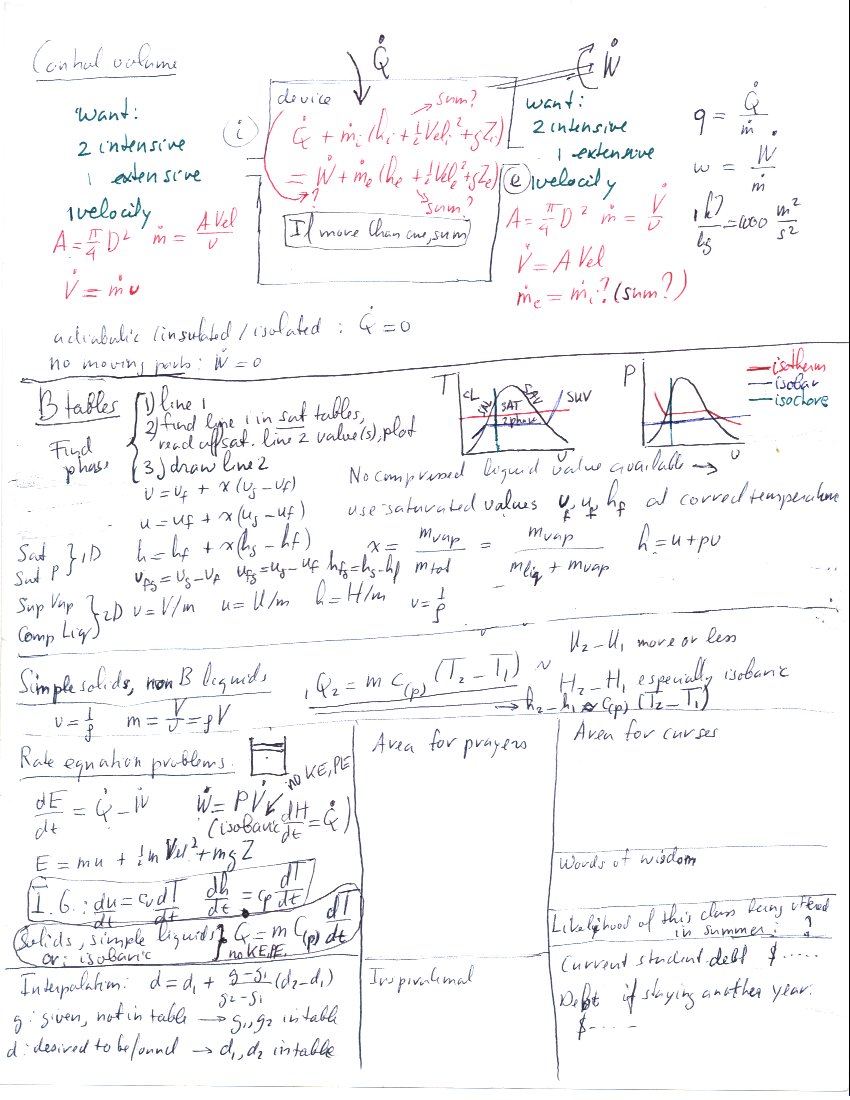 Control volume
Q̇
Ẇ
want:
2 intensive
1 extensive
1 velocity
A = π/4 D² ṁ = A Vel / v
V̇ = ṁ v
i
device
sum?
Q̇ + ṁᵢ (hᵢ + ½ Velᵢ² + gZᵢ)
= Ẇ + ṁₑ (hₑ + ½ Velₑ² + gZₑ)
?
sum?
If more than one, sum
e
want:
2 intensive
1 extensive
1 velocity
A = π/4 D² ṁ = V̇/v
V̇ = A Vel
ṁₑ = ṁᵢ? (sum?)
q = Q̇/ṁ
w = Ẇ/ṁ
1 kJ/kg = 1000 m²/s²
adiabatic / insulated / isolated : Q̇ = 0
no moving parts: Ẇ = 0
B tables
Find phase
1) line 1
2) find line 1 in sat tables,
read off sat. line 2 value(s), plot
3) draw line 2
T
CL
SAT
2 phase
SUV
v
P
v
isotherm
isobar
isochore
v = v_f + x(v_g − v_f)
u = u_f + x(u_g − u_f)
h = h_f + x(h_g − h_f)
v_fg = v_g − v_f u_fg = u_g − u_f h_fg = h_g − h_f
No compressed liquid value available →
use saturated values v_f u_f h_f at correct temperature
x = m_vap / m_tot = m_vap / (m_liq + m_vap) h = u + pv
Sat
Sat P } 1D
Sup Vap
Comp Liq } 2D v = V/m u = U/m h = H/m v = 1/ρ
Simple solids, non B liquids
v = 1/ρ m = V/v = ρV
₁Q₂ = m C₍ₚ₎ (T₂ − T₁) ~
U₂ − U₁ more or less
H₂ − H₁ especially isobaric
→ h₂ − h₁ ≈ C₍ₚ₎ (T₂ − T₁)
Rate equation problems
dE/dt = Q̇ − Ẇ Ẇ = P V̇ no KE, PE
(isobaric dH/dt = Q̇)
E = mu + ½ m Vel² + mgZ
I.G.: du/dt = cᵥ dT/dt dh/dt = cₚ dT/dt
Solids, simple liquids
or: isobaric } Q̇ = m C₍ₚ₎ dT/dt
no KE, PE
Interpolation: d = d₁ + (g − g₁)/(g₂ − g₁) (d₂ − d₁)
g: given, not in table → g₁, g₂ in table
d: desired to be found → d₁, d₂ in table
Area for prayers
Inspirational
Area for curses
Words of wisdom
Likelihood of this class being offered
in summer: ?
Current student debt $.....
Debt if staying another year:
$.....